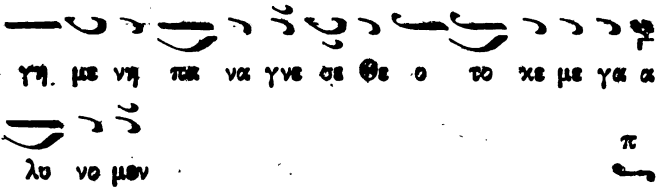 γη με νη πα να γνε σε Θε ο το κε με γα α
λυ νο μεν
π